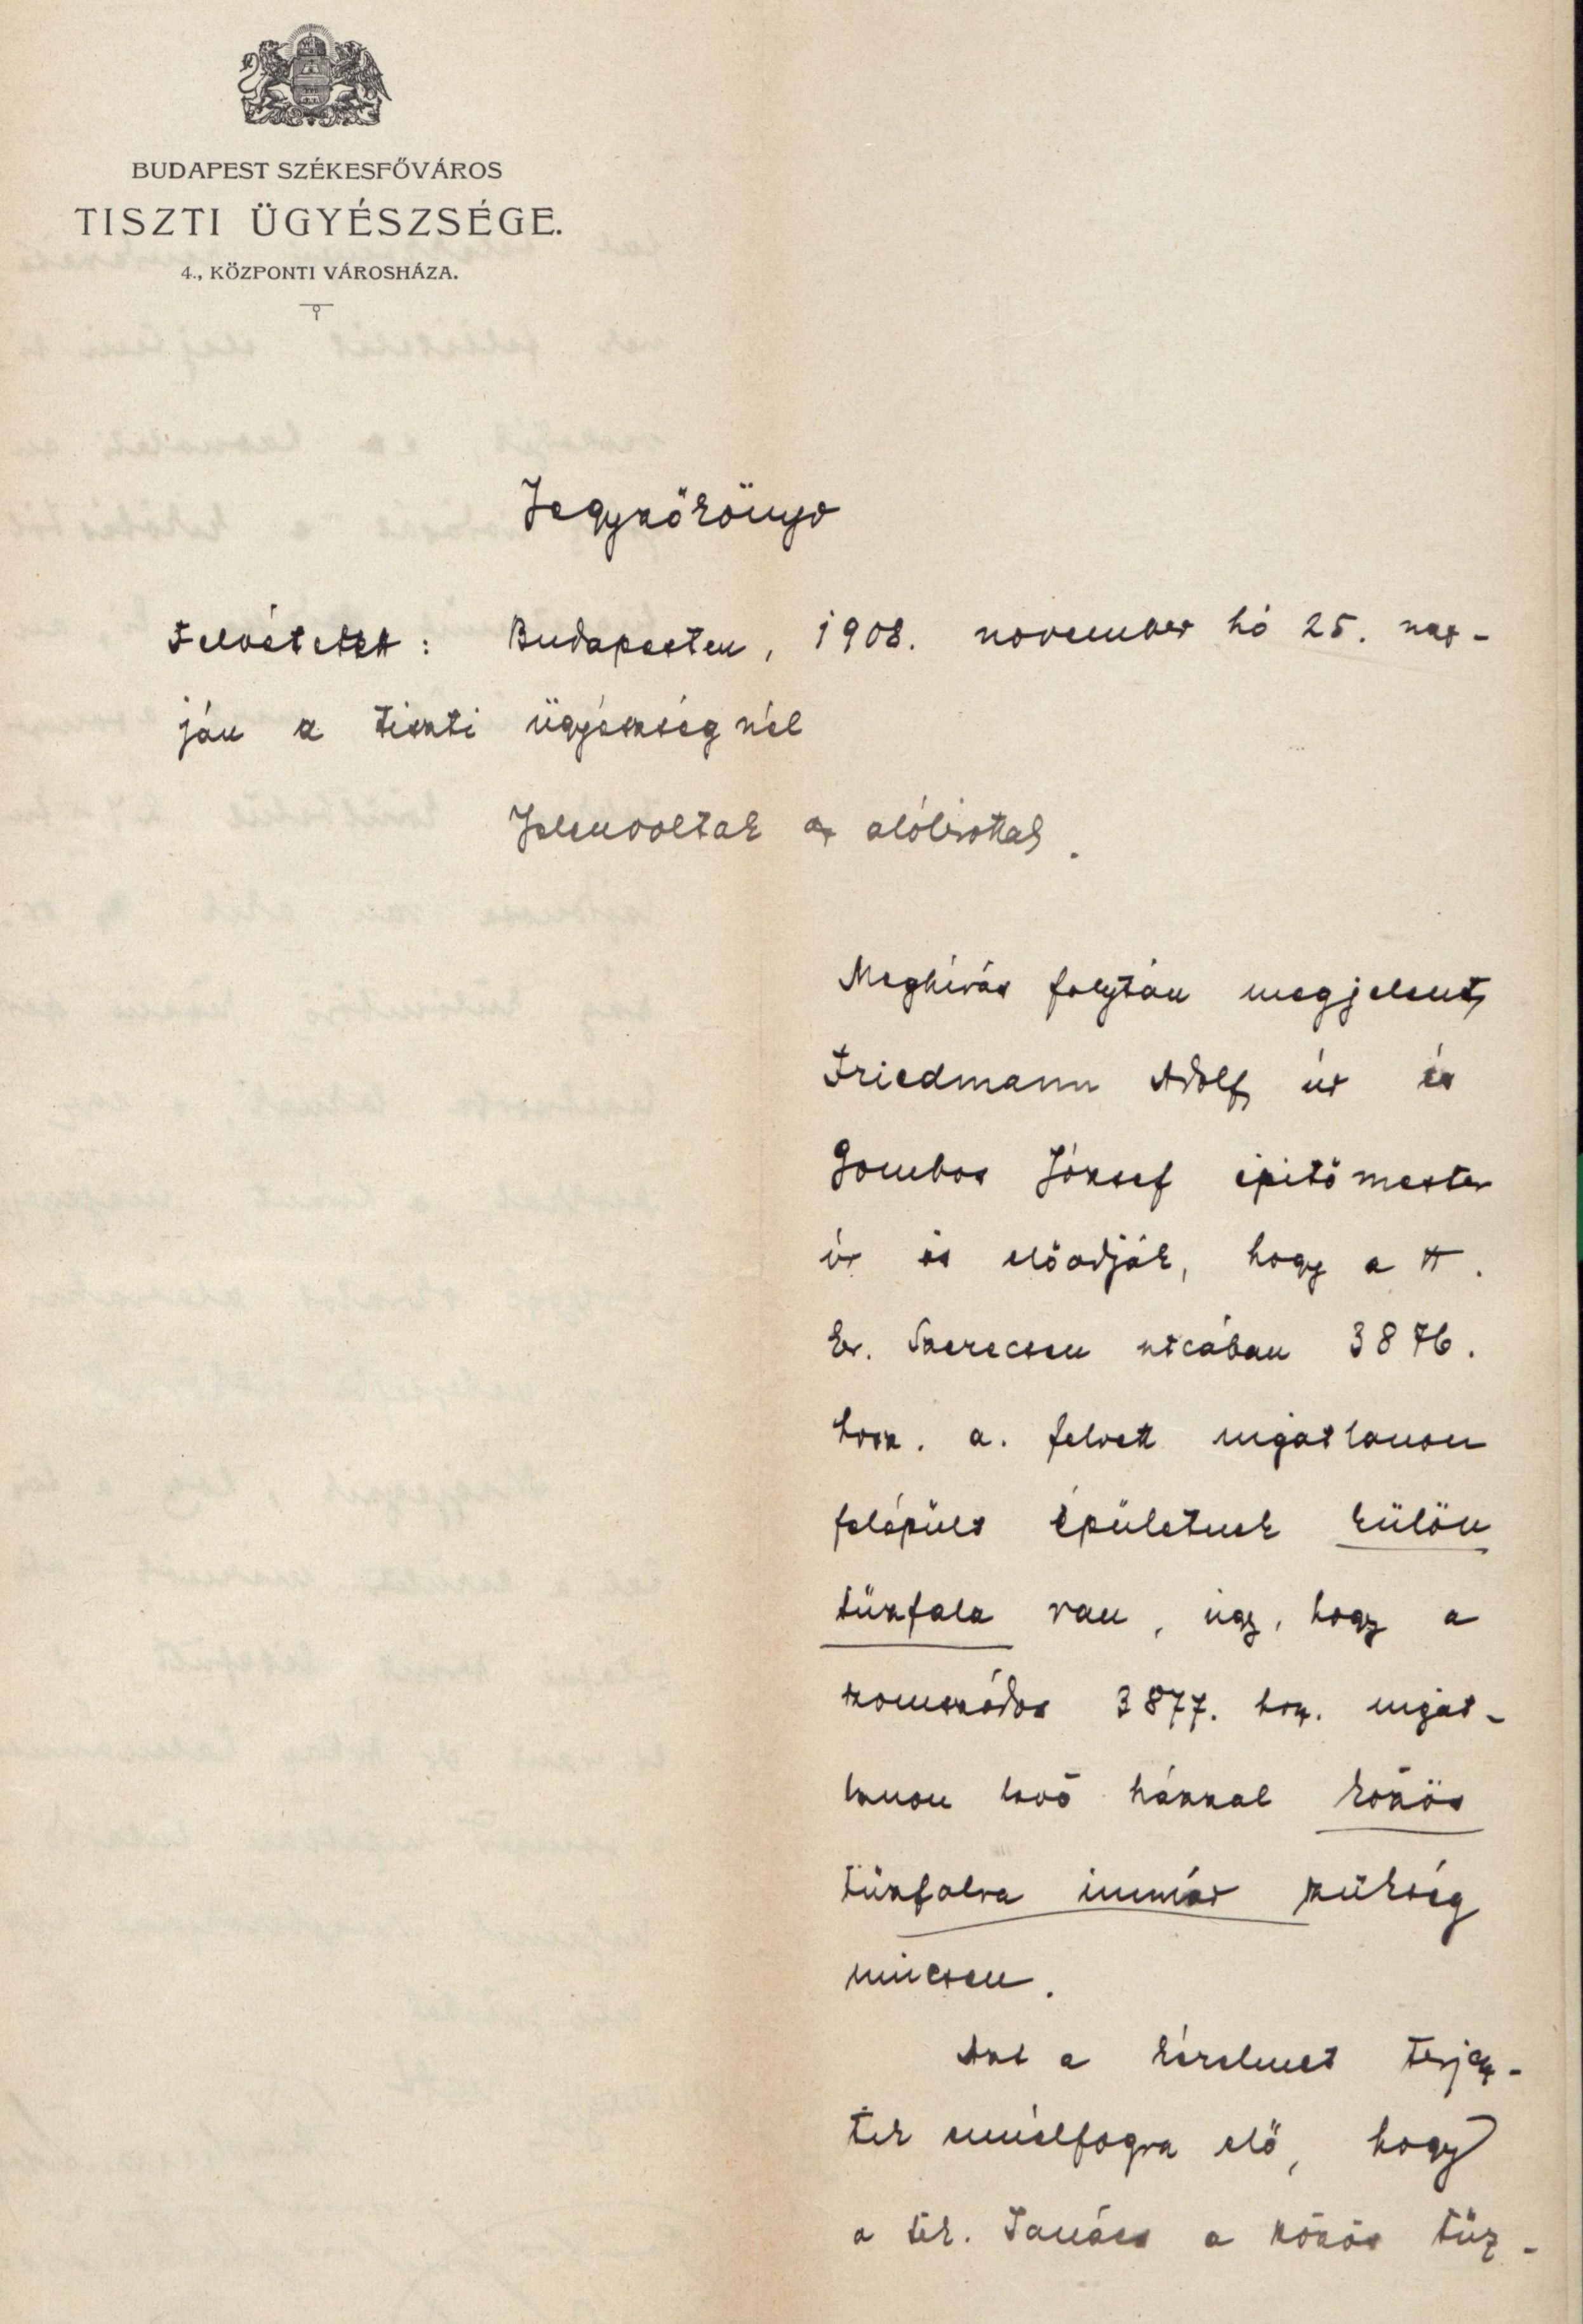 BUDAPEST SZÉKESFŐVÁROS
TISZTI ÜGYÉSZSÉGE.
4., KÖZPONTI VÁROSHÁZA.
Jegyzőkönyv
Felvétetett: Budapesten, 1908. november hó 25. nap-
ján a tiszti ügyészségnél
Jelenvoltak az alólirottak.
Meghívás folytán megjelent
Friedmann Adolf úr és
Gombos József építőmester
úr és előadják, hogy a
ker. Szerecsen utcában 3876.
hrsz. a. felvett ingatlanon
felépült épületnek külön
tűzfala van, úgy, hogy a
szomszédos 3877. hrsz. ingat-
lanon levő házzal közös
tűzfalra immár szükség
nincsen.
Azt a kérelmet terjesz-
tik ennélfogva elő, hogy
a tek. Tanács a közös tűz-